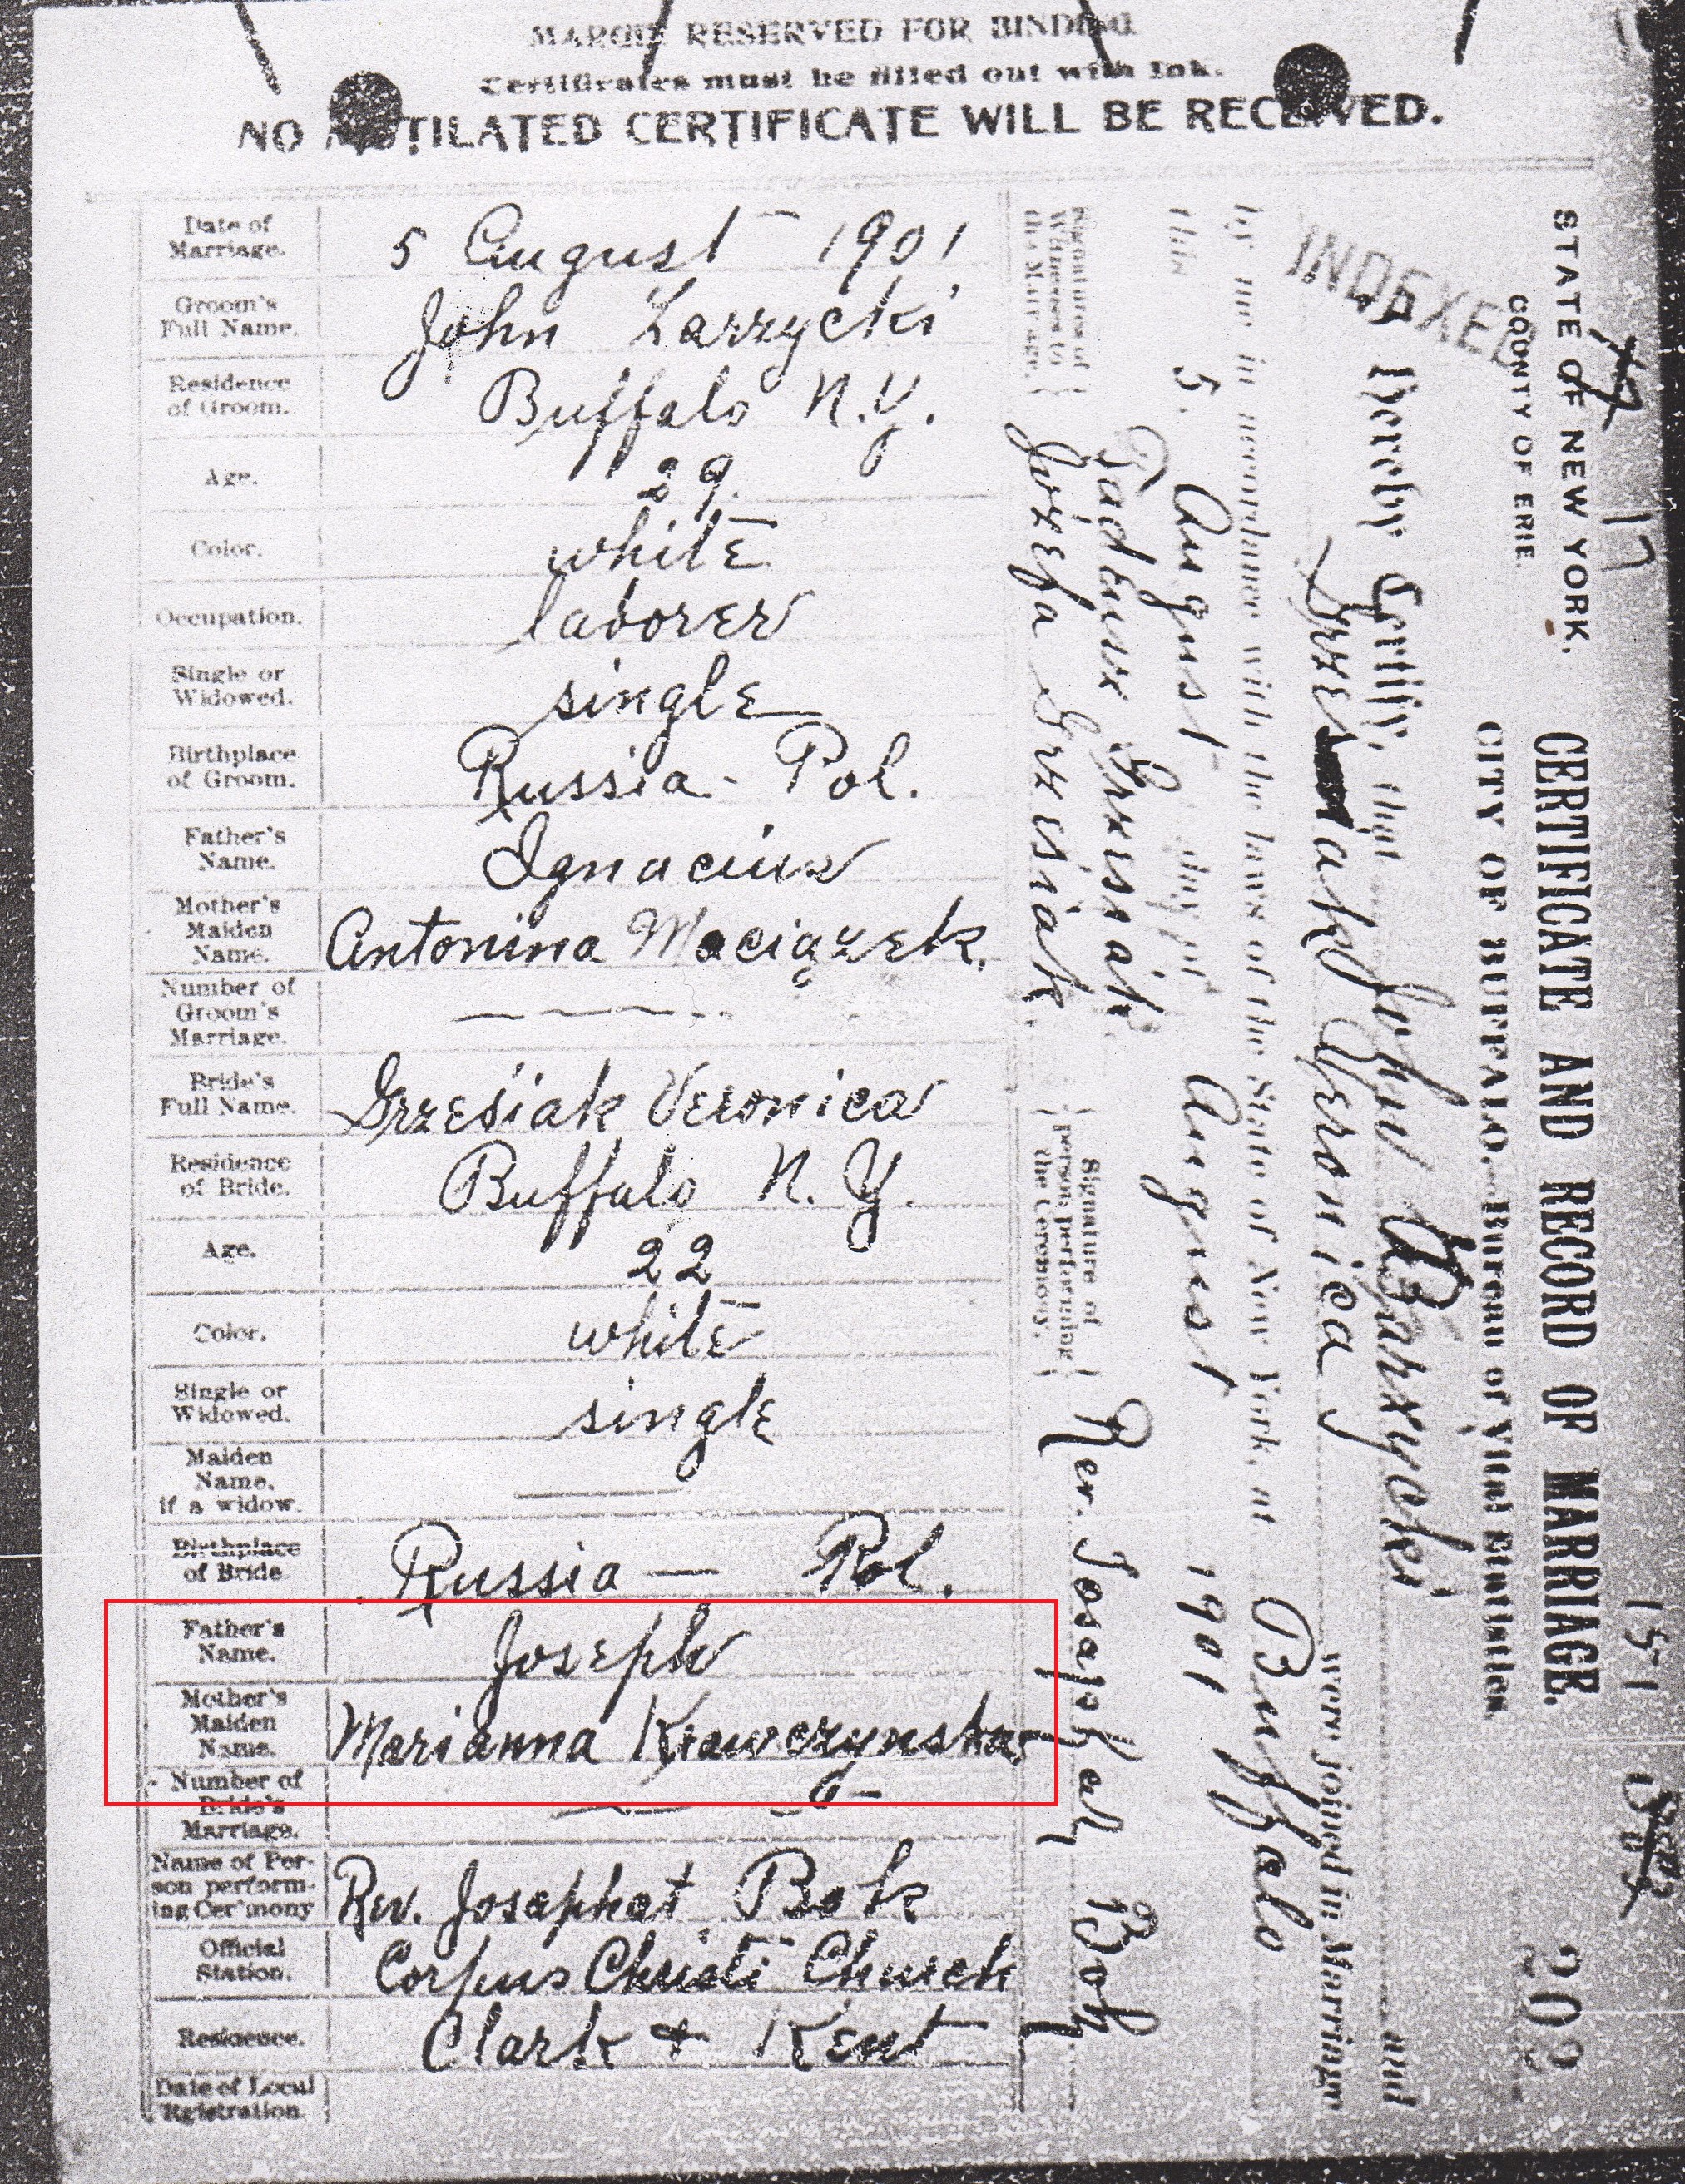 MARGIN RESERVED FOR BINDING.
Certificates must be filled out with Ink.
NO MUTILATED CERTIFICATE WILL BE RECEIVED.
Date of Marriage. 5 August 1901
Groom's Full Name. John Zarzycki
Residence of Groom. Buffalo N.Y.
Age. 29.
Color. white
Occupation. laborer
Single or Widowed. single
Birthplace of Groom. Russia - Pol.
Father's Name. Ignacius
Mother's Maiden Name. Antonina Maciązek.
Number of Groom's Marriage.
Bride's Full Name. Grzesiak Veronica
Residence of Bride. Buffalo N. Y.
Age. 22
Color. white
Single or Widowed. single
Maiden Name, if a widow.
Birthplace of Bride Russia — Pol.
Father's Name. Joseph
Mother's Maiden Name. Marianna Krawczynska
Number of Bride's Marriage.
Name of Person performing Cer'mony Rev. Josaphat Bok
Official Station. Corpus Christi Church
Residence. Clark + Kent
Date of Local Rgistration.
STATE OF NEW YORK,
COUNTY OF ERIE.
CERTIFICATE AND RECORD OF MARRIAGE.
CITY OF BUFFALO.—Bureau of Vital Statistics
1571
202
INDEXED
I Hereby Certify, that John Zarzycki and
Grzesiak Veronica were joined in Marriage
by me in accordance with the laws of the State of New York, at Buffalo
this 5. August day of August 1901
Signatures of Witnesses to the Marriage.
Tadeusz Grzesiak
Jozefa Grzesiak
Signature of person performing the Ceremony.
Rev. Josaphat Bok